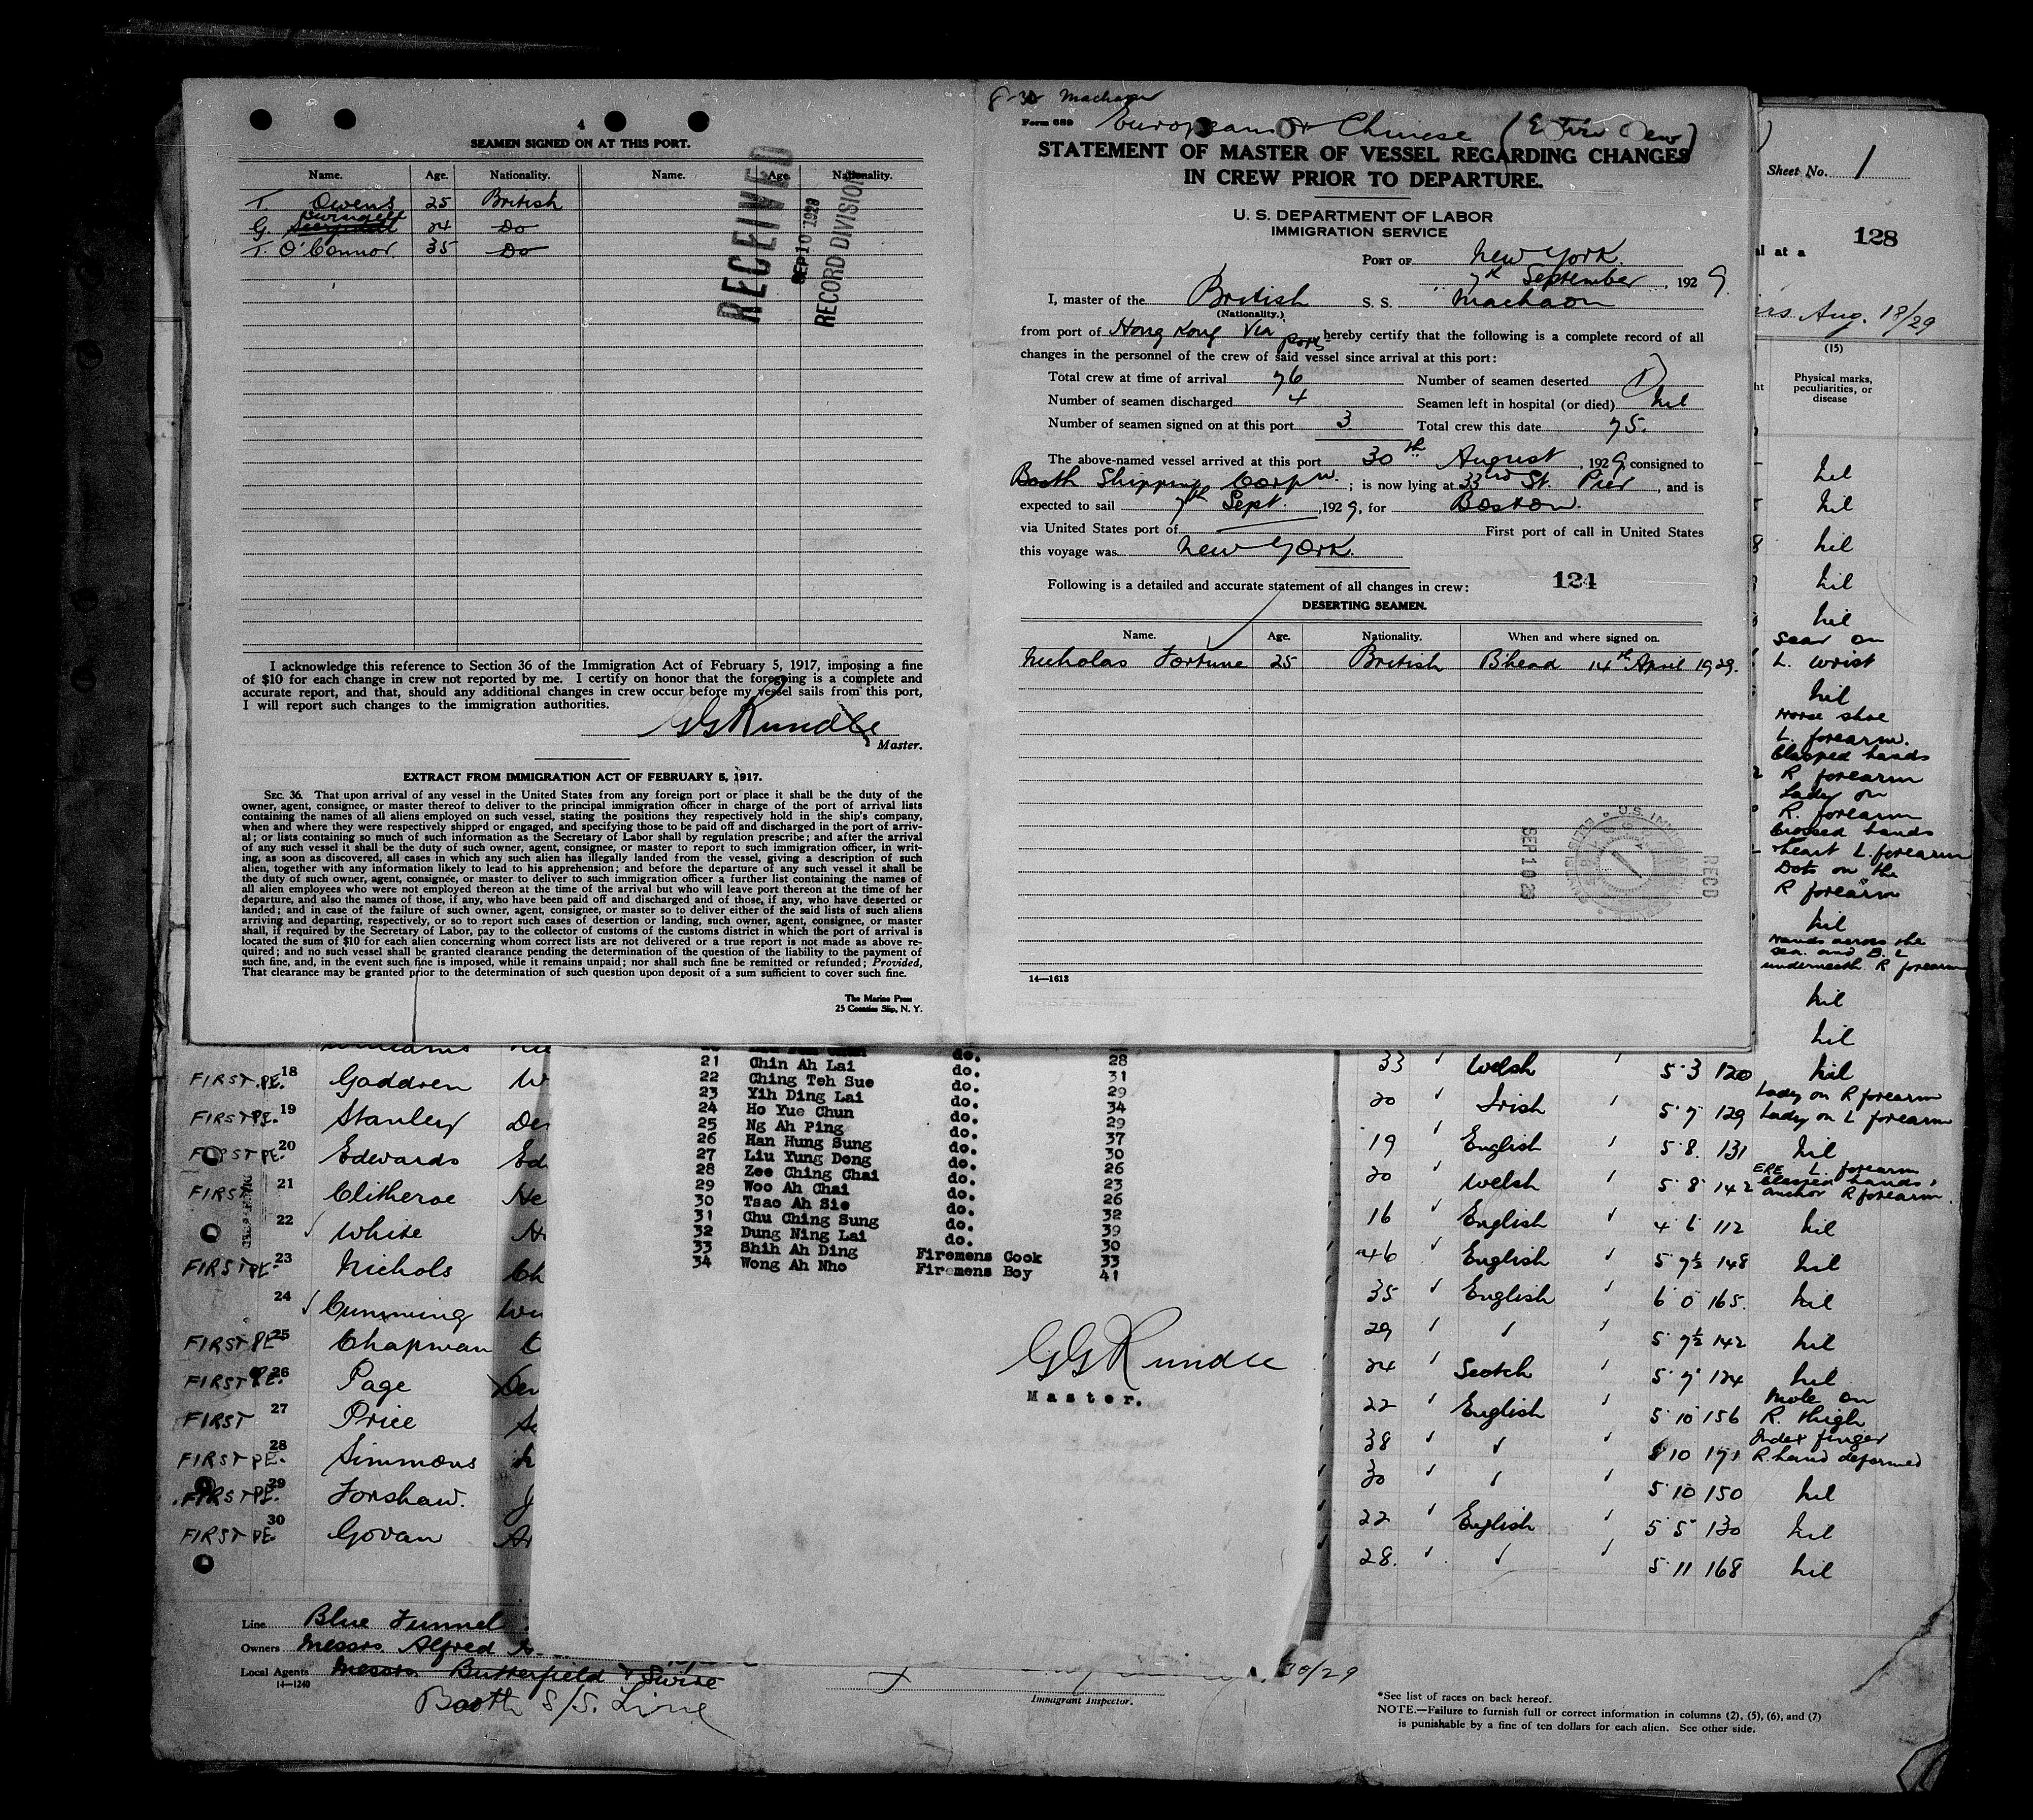 4
SEAMEN SIGNED ON AT THIS PORT.
Name. Age. Nationality. Name. Age. Nationality.
T. Owens 25 British
G. Swindell 24 Do
T. O'Connor. 35 Do
RECEIVED
SEP 10 1929
RECORD DIVISION
I acknowledge this reference to Section 36 of the Immigration Act of February 5, 1917, imposing a fine
of $10 for each change in crew not reported by me. I certify on honor that the foregoing is a complete and
accurate report, and that, should any additional changes in crew occur before my vessel sails from this port,
I will report such changes to the immigration authorities.
GGRundle
Master.
EXTRACT FROM IMMIGRATION ACT OF FEBRUARY 5, 1917.
SEC. 36. That upon arrival of any vessel in the United States from any foreign port or place it shall be the duty of the
owner, agent, consignee, or master thereof to deliver to the principal immigration officer in charge of the port of arrival lists
containing the names of all aliens employed on such vessel, stating the positions they respectively hold in the ship's company,
when and where they were respectively shipped or engaged, and specifying those to be paid off and discharged in the port of arriv-
al; or lists containing so much of such information as the Secretary of Labor shall by regulation prescribe; and after the arrival
of any such vessel it shall be the duty of such owner, agent, consignee, or master to report to such immigration officer, in writ-
ing, as soon as discovered, all cases in which any such alien has illegally landed from the vessel, giving a description of such
alien, together with any information likely to lead to his apprehension; and before the departure of any such vessel it shall be
the duty of such owner, agent, consignee, or master to deliver to such immigration officer a further list containing the names of
all alien employees who were not employed thereon at the time of the arrival but who will leave port thereon at the time of her
departure, and also the names of those, if any, who have been paid off and discharged and of those, if any, who have deserted or
landed; and in case of the failure of such owner, agent, consignee, or master so to deliver either of the said lists of such aliens
arriving and departing, respectively, or so to report such cases of desertion or landing, such owner, agent, consignee, or master
shall, if required by the Secretary of Labor, pay to the collector of customs of the customs district in which the port of arrival is
located the sum of $10 for each alien concerning whom correct lists are not delivered or a true report is not made as above re-
quired; and no such vessel shall be granted clearance pending the determination of the question of the liability to the payment of
such fine, and, in the event such fine is imposed, while it remains unpaid; nor shall such fine be remitted or refunded; Provided,
That clearance may be granted prior to the determination of such question upon deposit of a sum sufficient to cover such fine.
The Marine Press
25 Coenties Slip, N. Y.
8-30 Machaon
Form 689
European & Chinese (Entire Crew)
STATEMENT OF MASTER OF VESSEL REGARDING CHANGES
IN CREW PRIOR TO DEPARTURE.
U. S. DEPARTMENT OF LABOR
IMMIGRATION SERVICE
PORT OF New York.
7th September, 1929
I, master of the British S. S. Machaon
(Nationality.)
from port of Hong Kong Via ports hereby certify that the following is a complete record of all
changes in the personnel of the crew of said vessel since arrival at this port:
Total crew at time of arrival 76 Number of seamen deserted 1
Number of seamen discharged 4 Seamen left in hospital (or died) Nil
Number of seamen signed on at this port 3 Total crew this date 75.
The above-named vessel arrived at this port 30th August, 1929, consigned to
Booth Shipping Corpn.; is now lying at 33rd St. Pier, and is
expected to sail 7th Sept., 1929, for Boston.
via United States port of First port of call in United States
this voyage was New York.
Following is a detailed and accurate statement of all changes in crew: 124
DESERTING SEAMEN.
Name. Age. Nationality. When and where signed on.
Nicholas Fortune 25 British B'head 14th April 1929.
SEP 10 29
U.S. IMMIGRATION
REC'D
14—1613
Sheet No. 1
128
al at a
Aug. 18/29
(15)
Physical marks,
peculiarities, or
disease
Nil
Nil
Nil
Nil
Nil
Scar on
L. wrist
Nil
Horse shoe
L. forearm.
Clasped hands
R forearm
Lady on
R. forearm
Crossed hands
heart L. forearm
Dots on the
R forearm
Nil
Hands across the
sea and B. L
underneath R forearm
Nil
Nil
Williams
FIRST P.E. 18 Gaddren W
FIRST P.E. 19 Stanley Den
FIRST P.E. 20 Edwards Ed
FIRST 21 Clitheroe He
22 White
FIRST P.E. 23 Nichols Ch
24 Cumming Wi
FIRST P.E. 25 Chapman C
FIRST P.E. 26 Page Den
FIRST 27 Price
FIRST P.E. 28 Simmons
FIRST P.E. 29 Forshaw. J
FIRST P.E. 30 Govan Ar
do. 28
21 Chin Ah Lai do. 31
22 Ching Teh Sue do. 29
23 Yih Ding Lai do. 34
24 Ho Yue Chun do. 29
25 Ng Ah Ping do. 37
26 Han Hung Sung do. 30
27 Liu Yung Dong do. 26
28 Zee Ching Chai do. 23
29 Woo Ah Chai do. 26
30 Tsao Ah Sie do. 32
31 Chu Ching Sung do. 39
32 Dung Ning Lai do. 30
33 Shih Ah Ding Firemens Cook 33
34 Wong Ah Nho Firemens Boy 41
GGRundle
Master.
33 Welsh 5 3 120 Nil
20 Irish 5 7 129 Lady on R forearm
Lady on L forearm
19 English 5 8 131 Nil
20 Welsh 5 8 142 L. forearm
Clasped hands,
anchor R forearm.
16 English 4 6 112 Nil
46 English 5 7½ 148 Nil
35 English 6 0 165. Nil
29 5 7½ 142 Nil
24 Scotch 5 7 124 Nil
22 English 5 10 156 Mole on
R. thigh
38 5 10 171 Index finger
R. hand deformed
30 5 10 150 Nil
22 English 5 5 130 Nil
28. 5 11 168 Nil
Line Blue Funnel
Owners Messrs. Alfred
Local Agents Messrs Butterfield & Swire
14—1240
Booth S/S. Line
30/29
Immigrant Inspector.
*See list of races on back hereof.
NOTE.—Failure to furnish full or correct information in columns (2), (5), (6), and (7)
is punishable by a fine of ten dollars for each alien. See other side.